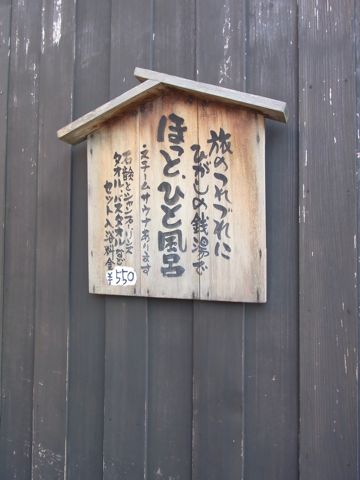 旅のつれづれに
ひがしの銭湯で
ほっと、ひと風呂
スチームサウナあります
石鹸とシャンプー・リンス
タオル・バスタオルなど
セット入浴料金
¥550